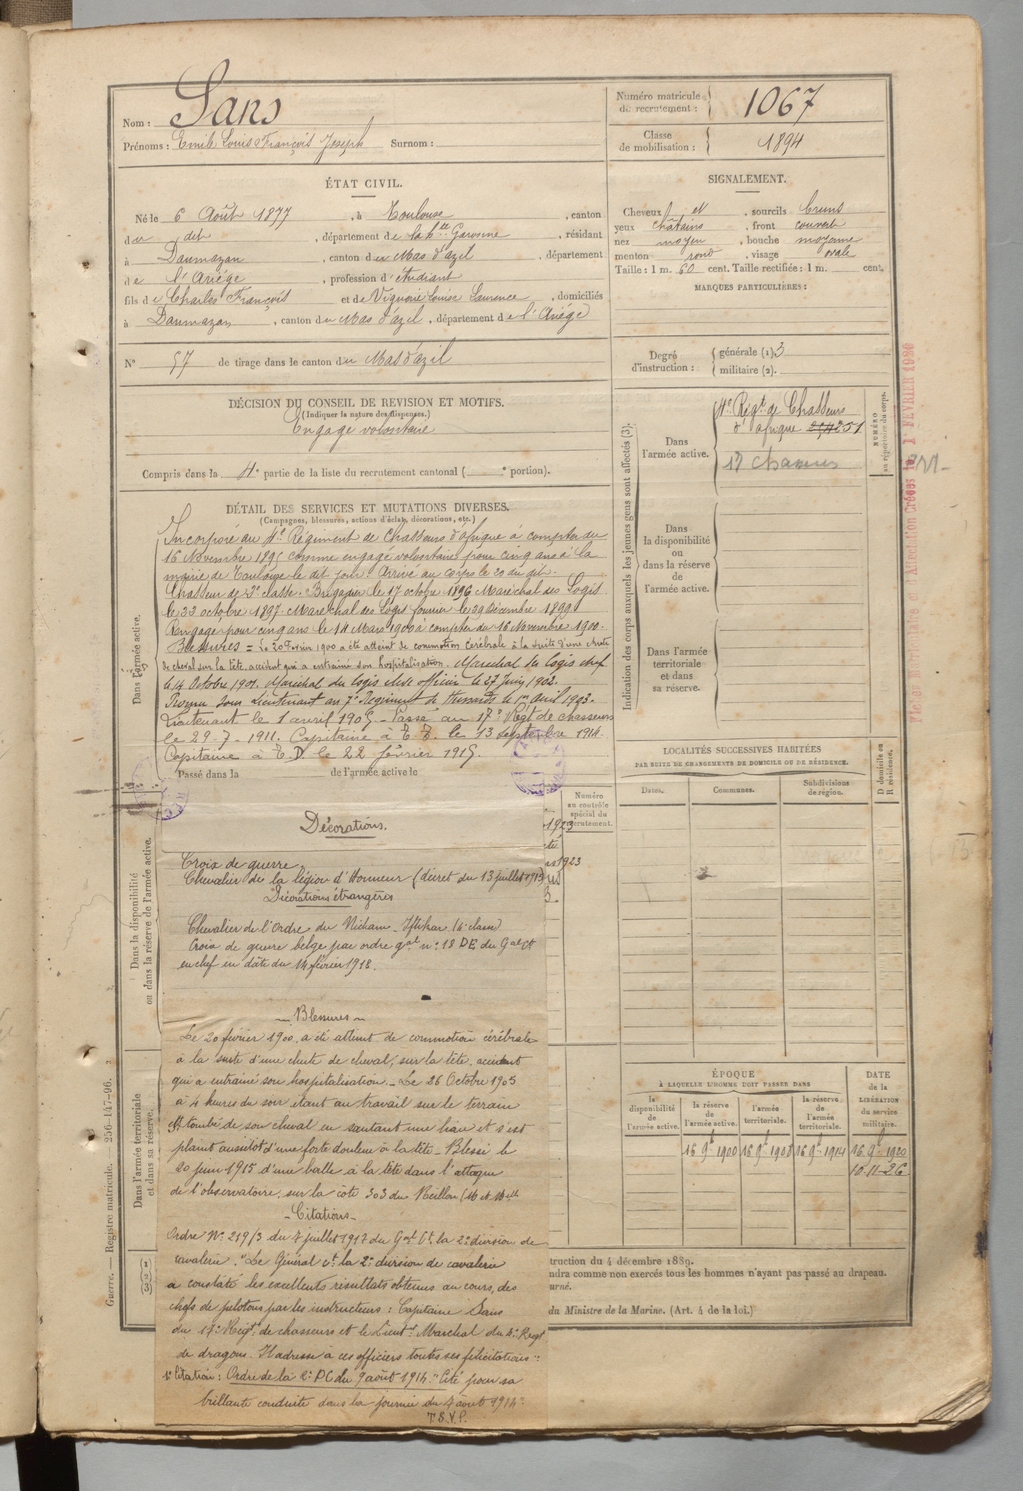 Nom : Sans
Prénoms : Emile Louis François Joseph Surnom :
Numéro matricule du recrutement : 1067
Classe de mobilisation : 1894
ÉTAT CIVIL.
Né le 6 Août 1877, à Toulouse, canton
du dit, département de la Hte Garonne, résidant
à Daumazan, canton du Mas d'azil, département
de l'Ariège, profession d'étudiant
fils de Charles François et de Vignerie Louise Laurence, domiciliés
à Daumazan, canton du Mas d'azil, département de l'Ariège
N° 57 de tirage dans le canton du Mas d'azil
SIGNALEMENT.
Cheveux et, sourcils bruns
yeux châtains, front couvert
nez moyen, bouche moyenne
menton rond, visage ovale
Taille : 1 m. 60 cent. Taille rectifiée : 1 m. cent.
MARQUES PARTICULIÈRES :
Degré d'instruction : générale (1) 3
militaire (2).
DÉCISION DU CONSEIL DE REVISION ET MOTIFS.
(Indiquer la nature des dispenses.)
Engagé volontaire
Compris dans la 4e partie de la liste du recrutement cantonal ( e portion).
DÉTAIL DES SERVICES ET MUTATIONS DIVERSES.
(Campagnes, blessures, actions d'éclat, décorations, etc.)
Dans l'armée active.
Incorporé au 4e Régiment de Chasseurs d'afrique à compter du
16 Novembre 1895 comme engagé volontaire pour cinq ans à la
mairie de Toulouse le dit jour. Arrivé au corps le 20 du dit.
Chasseur de 2e classe. Brigadier le 17 octobre 1896. Maréchal des Logis
le 23 octobre 1897. Maréchal des Logis fourrier le 29 décembre 1899
Rengagé pour cinq ans le 14 Mars 1900 à compter du 16 Novembre 1900.
Blessures = Le 20 Février 1900 a été atteint de commotion cérébrale à la suite d'une chute
de cheval sur la tête, accident qui a entrainé son hospitalisation. Maréchal des logis chef
le 14 Octobre 1901. Maréchal des logis élève officier le 27 Juin 1902.
Promu sous Lieutenant au 7e Régiment de Hussards le 1er avril 1903.
Lieutenant le 1 avril 1905 - Passé au 17e Régt de chasseurs
le 29-7-1911. Capitaine à T.T. le 13 septembre 1914.
Capitaine à T.D. le 22 février 1915.
Passé dans la de l'armée active le
Indication des corps auxquels les jeunes gens sont affectés (3).
Dans l'armée active.
4e Régt de Chasseurs
d'afrique 251
17 Chasseurs
NUMÉRO au répertoire du corps.
Dans la disponibilité ou dans la réserve de l'armée active.
Dans l'armée territoriale et dans sa réserve.
LOCALITÉS SUCCESSIVES HABITÉES
PAR SUITE DE CHANGEMENTS DE DOMICILE OU DE RÉSIDENCE.
Dates. Communes. Subdivisions de région. D domicile ou R résidence.
Numéro au contrôle spécial du recrutement.
Dans la disponibilité ou dans la réserve de l'armée active.
Décorations.
Croix de guerre
Chevalier de la légion d'Honneur (décret du 13 juillet 1915
Décorations étrangères
Chevalier de l'Ordre du Nicham Iftikar
Croix de guerre belge par ordre gal n° 18 DE du Gal Ct
en chef en date du 14 février 1918.
- Blessures -
Le 20 février 1900, a été atteint de commotion cérébrale
à la suite d'une chute de cheval, sur la tête, accident
qui a entrainé son hospitalisation - Le 26 Octobre 1905
à 4 heures du soir étant au travail sur le terrain
est tombé de son cheval en sautant une haie et s'est
plaint aussitôt d'une forte douleur à la tête - Blessé le
20 juin 1915 d'une balle à la tête dans l'attaque
de l'observatoire, sur la côte 303 du Reillon (Mt et Mlle
- Citations -
Ordre N° 219/3 du 7 juillet 1917 du Gal Ct la 2e division de
cavalerie. "Le Général Ct la 2e division de cavalerie
a constaté les excellents résultats obtenus au cours des
chefs de pelotons par les instructeurs : Capitaine Sans
du 17e Régt de chasseurs et le Lieutt Marchal du 4e Régt
de dragons. Il adresse à ces officiers toutes ses félicitations".
1e Citation : Ordre de la 2e DC du 9 août 1914. "Cité pour sa
brillante conduite dans la journée du 4 août 1914.
T.S.V.P.
Dans l'armée territoriale et dans sa réserve.
ÉPOQUE
À LAQUELLE L'HOMME DOIT PASSER DANS
la disponibilité de l'armée active.
la réserve de l'armée active.
l'armée territoriale.
la réserve de l'armée territoriale.
DATE de la LIBÉRATION du service militaire.
16 9bre 1900
16 9bre 1908
16 9bre 1914
16 9bre 1920
10-11-26
truction du 4 décembre 1889.
ndra comme non exercés tous les hommes n'ayant pas passé au drapeau.
du Ministre de la Marine. (Art. 4 de la loi.)
(1)
(2)
(3)
Guerre. — Registre matricule. — 256-147-96.